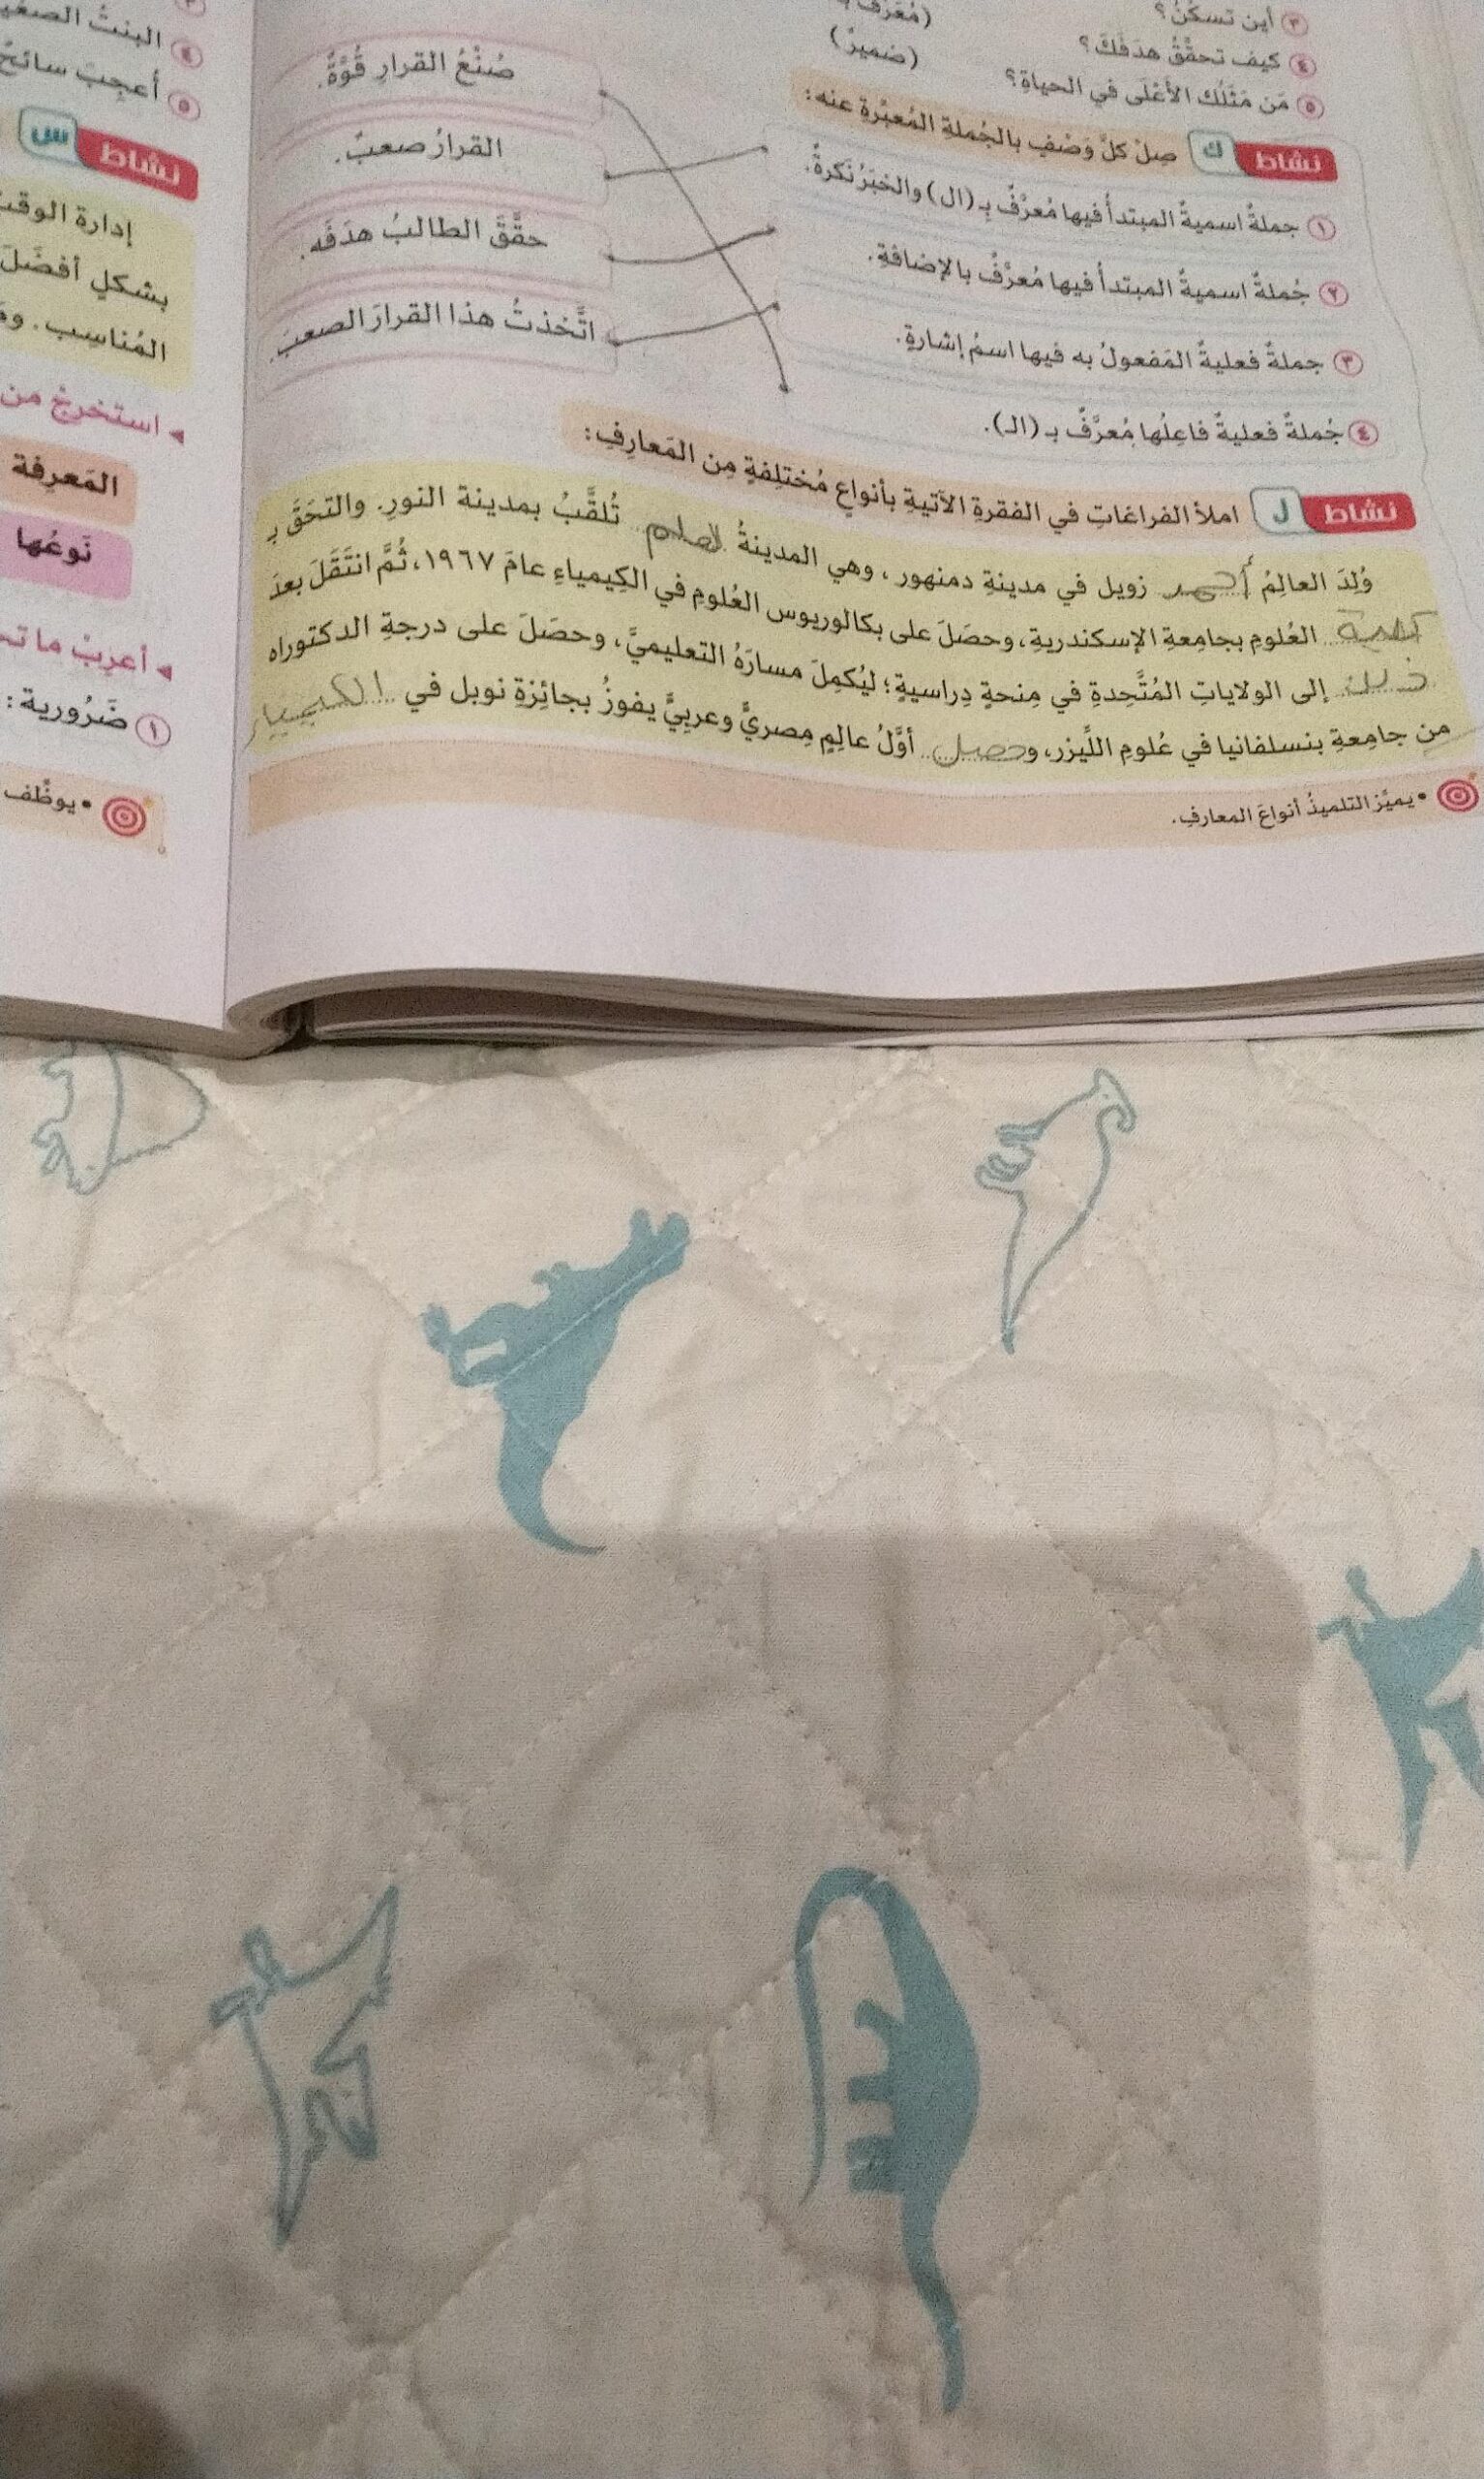 ٣ أين تسكُنُ؟
٤ كيف تحقِّقُ هدَفَكَ؟ (ضميرٌ)
٥ مَن مَثَلُك الأعْلَى في الحياةِ؟
نشاط ك صِلْ كلَّ وَصْفٍ بالجُملةِ المُعبِّرةِ عنه:
١ جملةٌ اسميةٌ المبتدأُ فيها مُعرَّفٌ بـ (ال) والخبَرُ نَكرةٌ.
٢ جُملةٌ اسميةٌ المبتدأُ فيها مُعرَّفٌ بالإضافةِ.
٣ جملةٌ فعليةٌ المَفعولُ به فيها اسمُ إشارةٍ.
٤ جُملةٌ فعليةٌ فاعِلُها مُعرَّفٌ بـ (الـ).
صُنْعُ القرارِ قُوَّةٌ.
القرارُ صعبٌ.
حقَّقَ الطالبُ هدَفَه.
اتَّخذتُ هذا القرارَ الصعبَ.
نشاط ل املأ الفراغاتِ في الفقرةِ الآتيةِ بأنواعٍ مُختلِفةٍ مِن المَعارِفِ:
وُلِدَ العالِمُ أحمد زويل في مدينةِ دمنهور، وهي المدينةُ تُلقَّبُ بمدينة النورِ. والتحَقَ بـ
كلية العُلومِ بجامِعةِ الإسكندريةِ، وحصَلَ على بكالوريوس العُلومِ في الكِيمياءِ عامَ ١٩٦٧، ثُمَّ انتَقَلَ بعدَ
ذلك إلى الولاياتِ المُتَّحِدةِ في مِنحةٍ دِراسيةٍ؛ ليُكمِلَ مسارَهُ التعليميَّ، وحصَلَ على درجةِ الدكتوراه
مِن جامِعةِ بنسلفانيا في عُلومِ اللَّيزر، و حصل أوَّلُ عالِمٍ مِصريٍّ وعربيٍّ يفوزُ بجائِزةِ نوبل في الكيمياء
• يميِّز التلميذُ أنواعَ المعارفِ.
٤ البنتُ
٥ أعجِبَ سائحٌ
نشاط س
إدارة الوقت
بشكلٍ أفضَلَ
المُناسِب.
استخرِجْ من
المَعرِفة
نَوعُها
أعرِبْ ما
١ ضَرُورية:
• يوظِّف